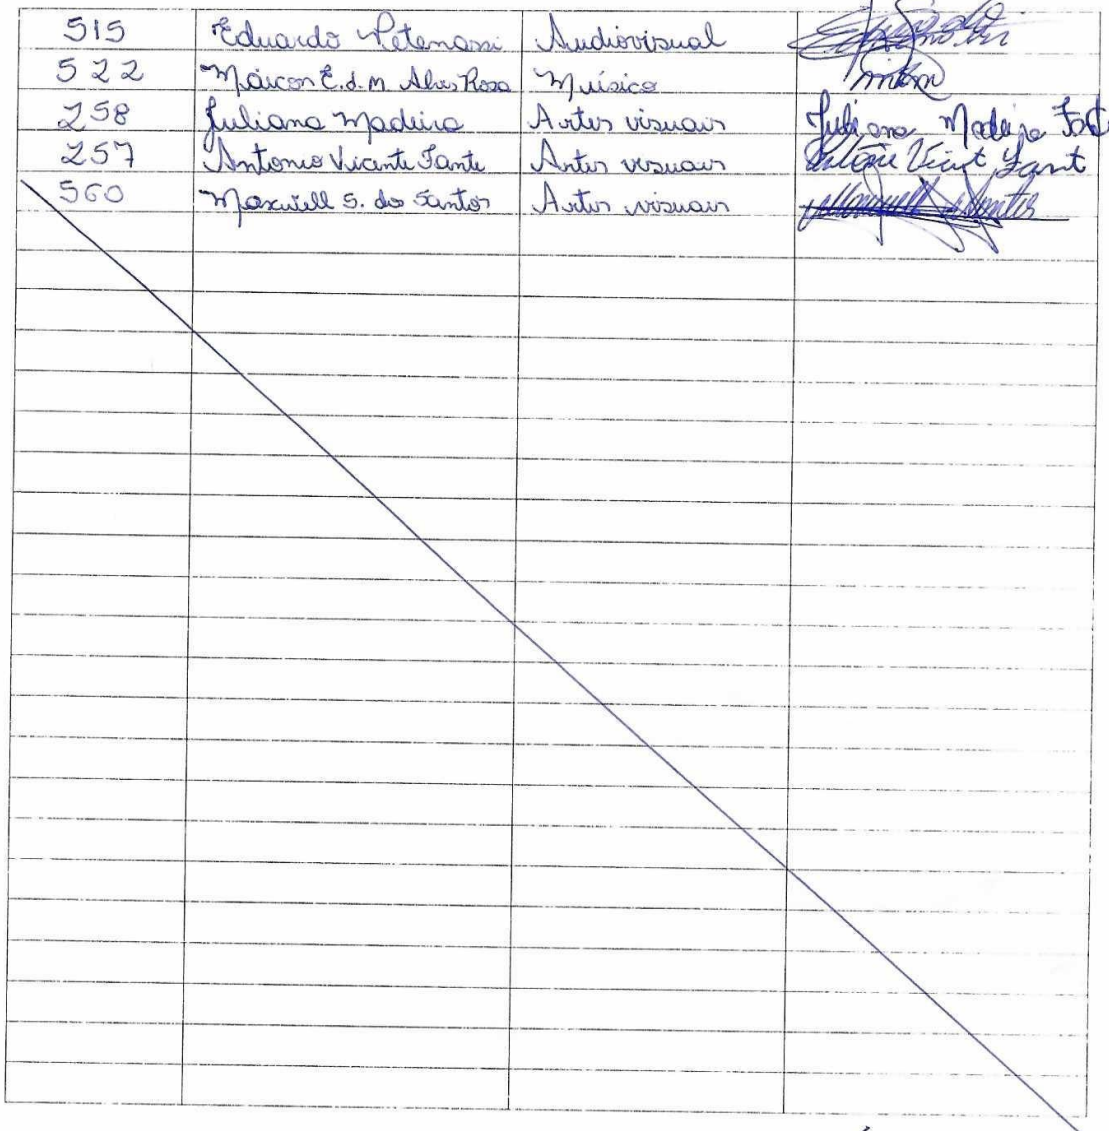 515 Eduardo Petenassi Audiovisual
522 Maicon E. d. M Alves Rosa Músico
258 Juliana Madeira Artes visuais Juliana Madeira
257 Antonio Vicente Fante Artes visuais
560 Maxwell S. dos Santos Artes visuais